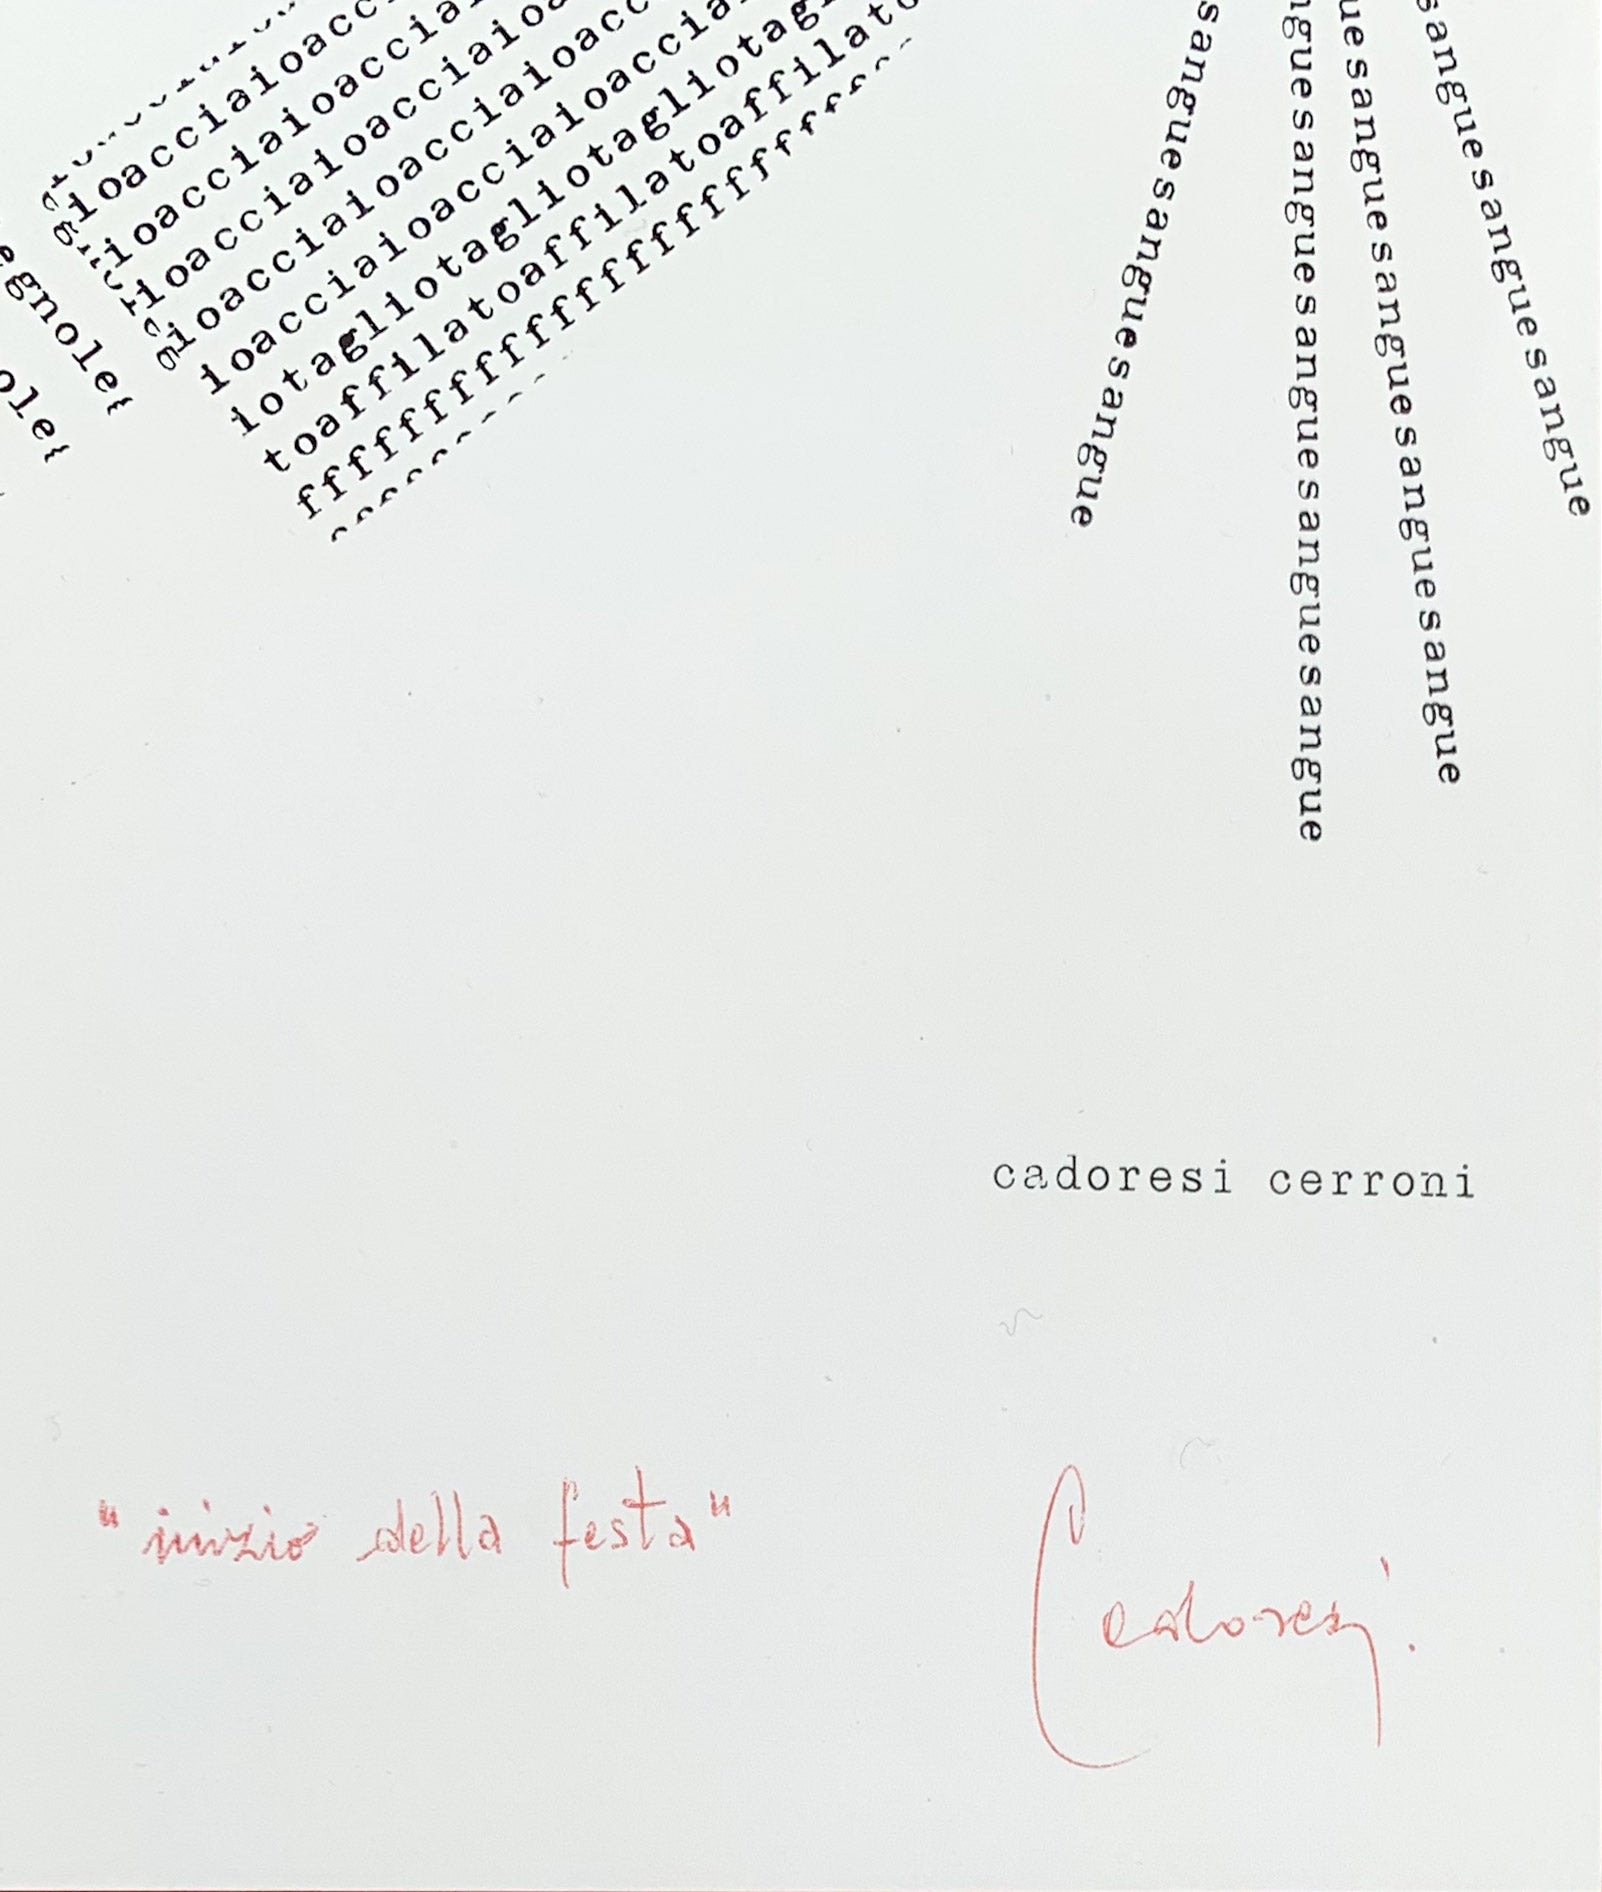 ioacciaioacc
ioacciaioaccia
ioacciaioacciaio
ioacciaioacciaioacc
ioacciaioacciaioaccia
iotagliotagliotagliotag
toaffilatoaffilatoaffilato
ffffffffffffffffffffff
egnole
ole
sanguesanguesanguesangue
nguesanguesanguesanguesanguesangue
uesanguesanguesanguesangue
sanguesanguesangue
cadoresi cerroni
"inizio della festa"
Cadoresi.